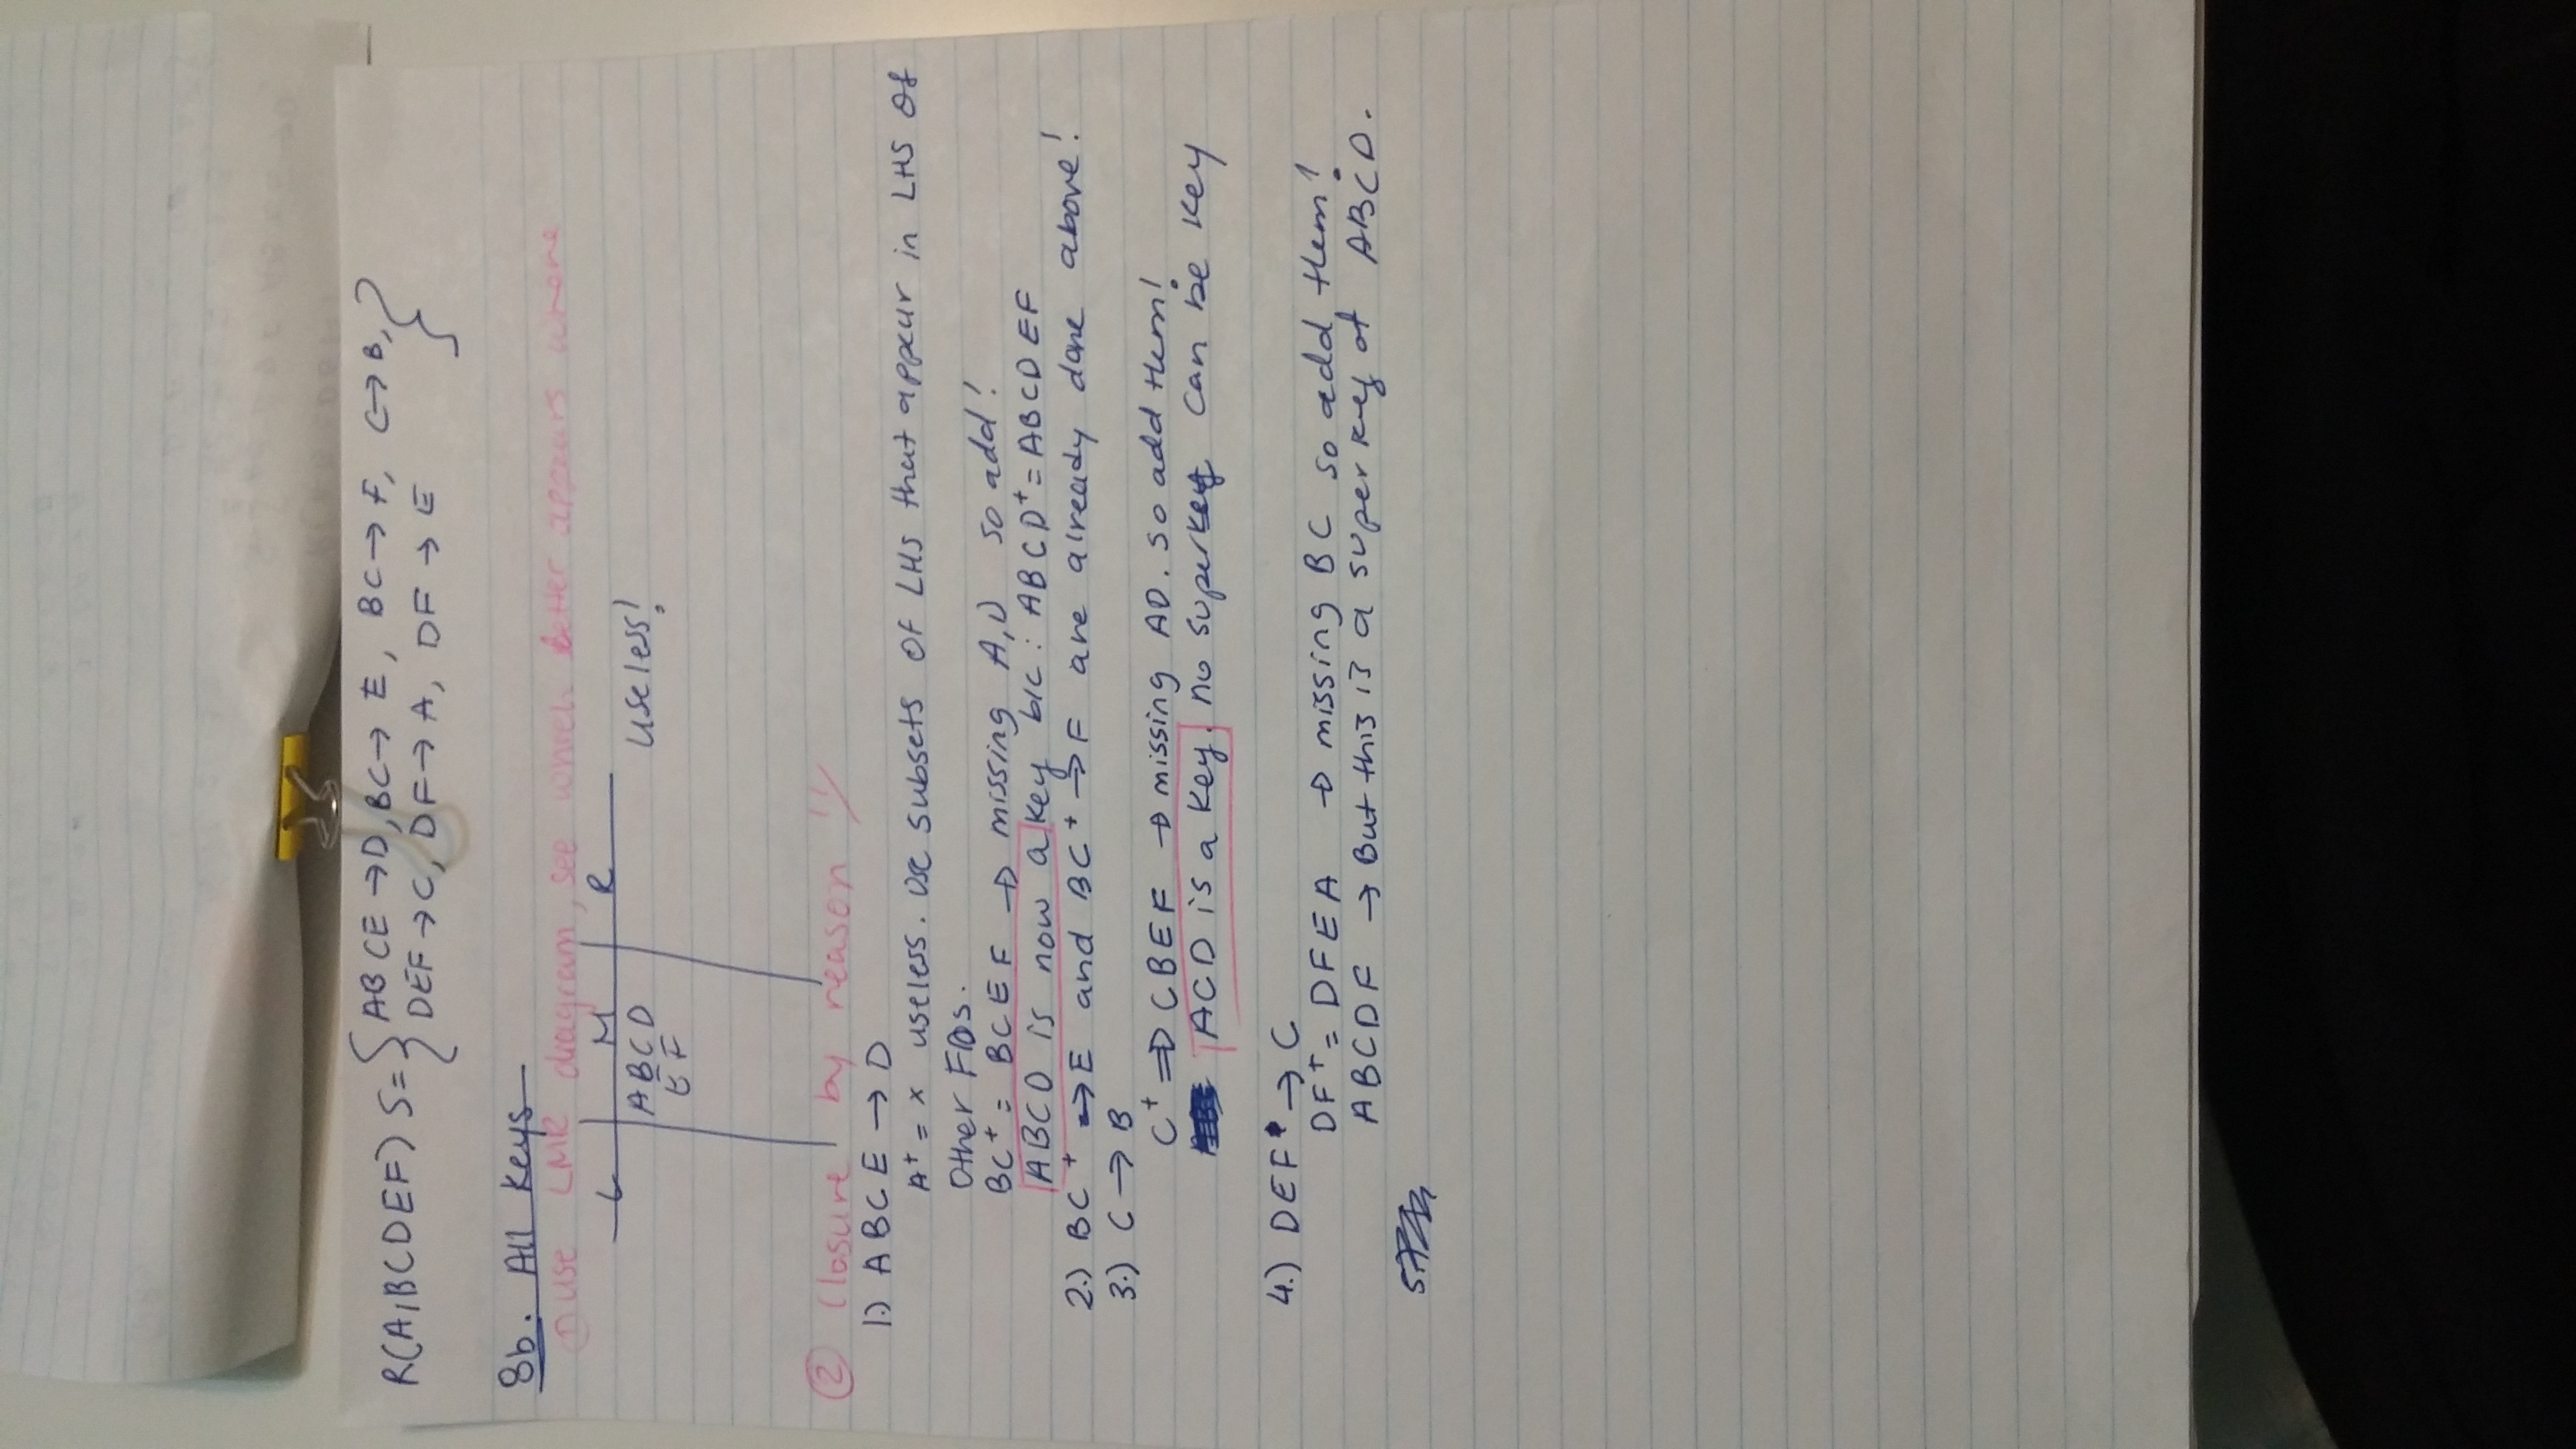 R(A,BCDEF) S= { ABCE → D, BC → E, BC → F, C → B,
DEF → C, DF → A, DF → E }
8b. All Keys
① use LMR diagram, see which letter appears where
L M R
ABCD useless!
EF
② Closure by reason !!
1.) ABCE → D
A⁺ = x useless. Use subsets of LHS that appear in LHS of
other FDs.
BC⁺ = BCEF → missing A,D so add!
ABCD is now a key b/c : ABCD⁺ = ABCDEF
2.) BC⁺ → E and BC⁺ → F are already done above!
3.) C → B
C⁺ ⇒ CBEF → missing AD. So add them!
ACD is a key. no superkey can be key
4.) DEF → C
DF⁺ = DFEA → missing BC so add them!
ABCDF → But this is a superkey of ABCD.